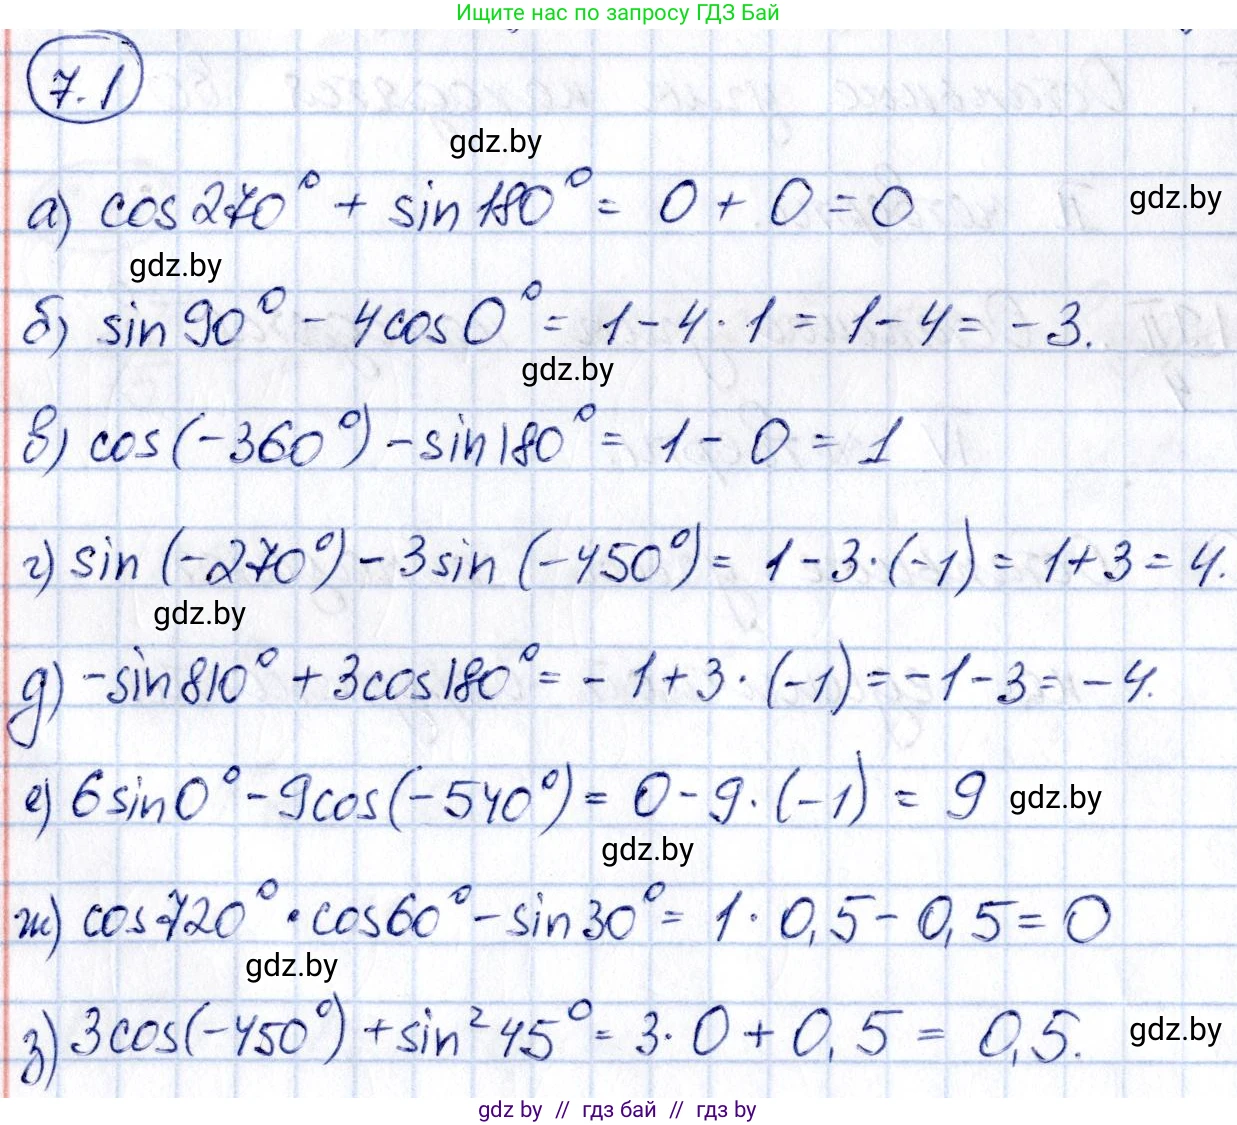 Ищите нас по запросу ГДЗ Бай
7.1
gdz.by
а) cos 270° + sin 180° = 0 + 0 = 0
gdz.by
gdz.by
б) sin 90° - 4cos 0° = 1 - 4 · 1 = 1 - 4 = -3.
gdz.by
в) cos(-360°) - sin 180° = 1 - 0 = 1
г) sin (-270°) - 3 sin (-450°) = 1 - 3·(-1) = 1+3 = 4.
gdz.by
д) -sin 810° + 3cos 180° = - 1 + 3 · (-1) = -1 - 3 = -4.
е) 6 sin 0° - 9cos(-540°) = 0 - 9·(-1) = 9
gdz.by
gdz.by
ж) cos 720° · cos 60° - sin 30° = 1 · 0,5 - 0,5 = 0
gdz.by
з) 3cos(-450°) + sin² 45° = 3 · 0 + 0,5 = 0,5.
gdz.by
gdz by // гдз бай // гдз by